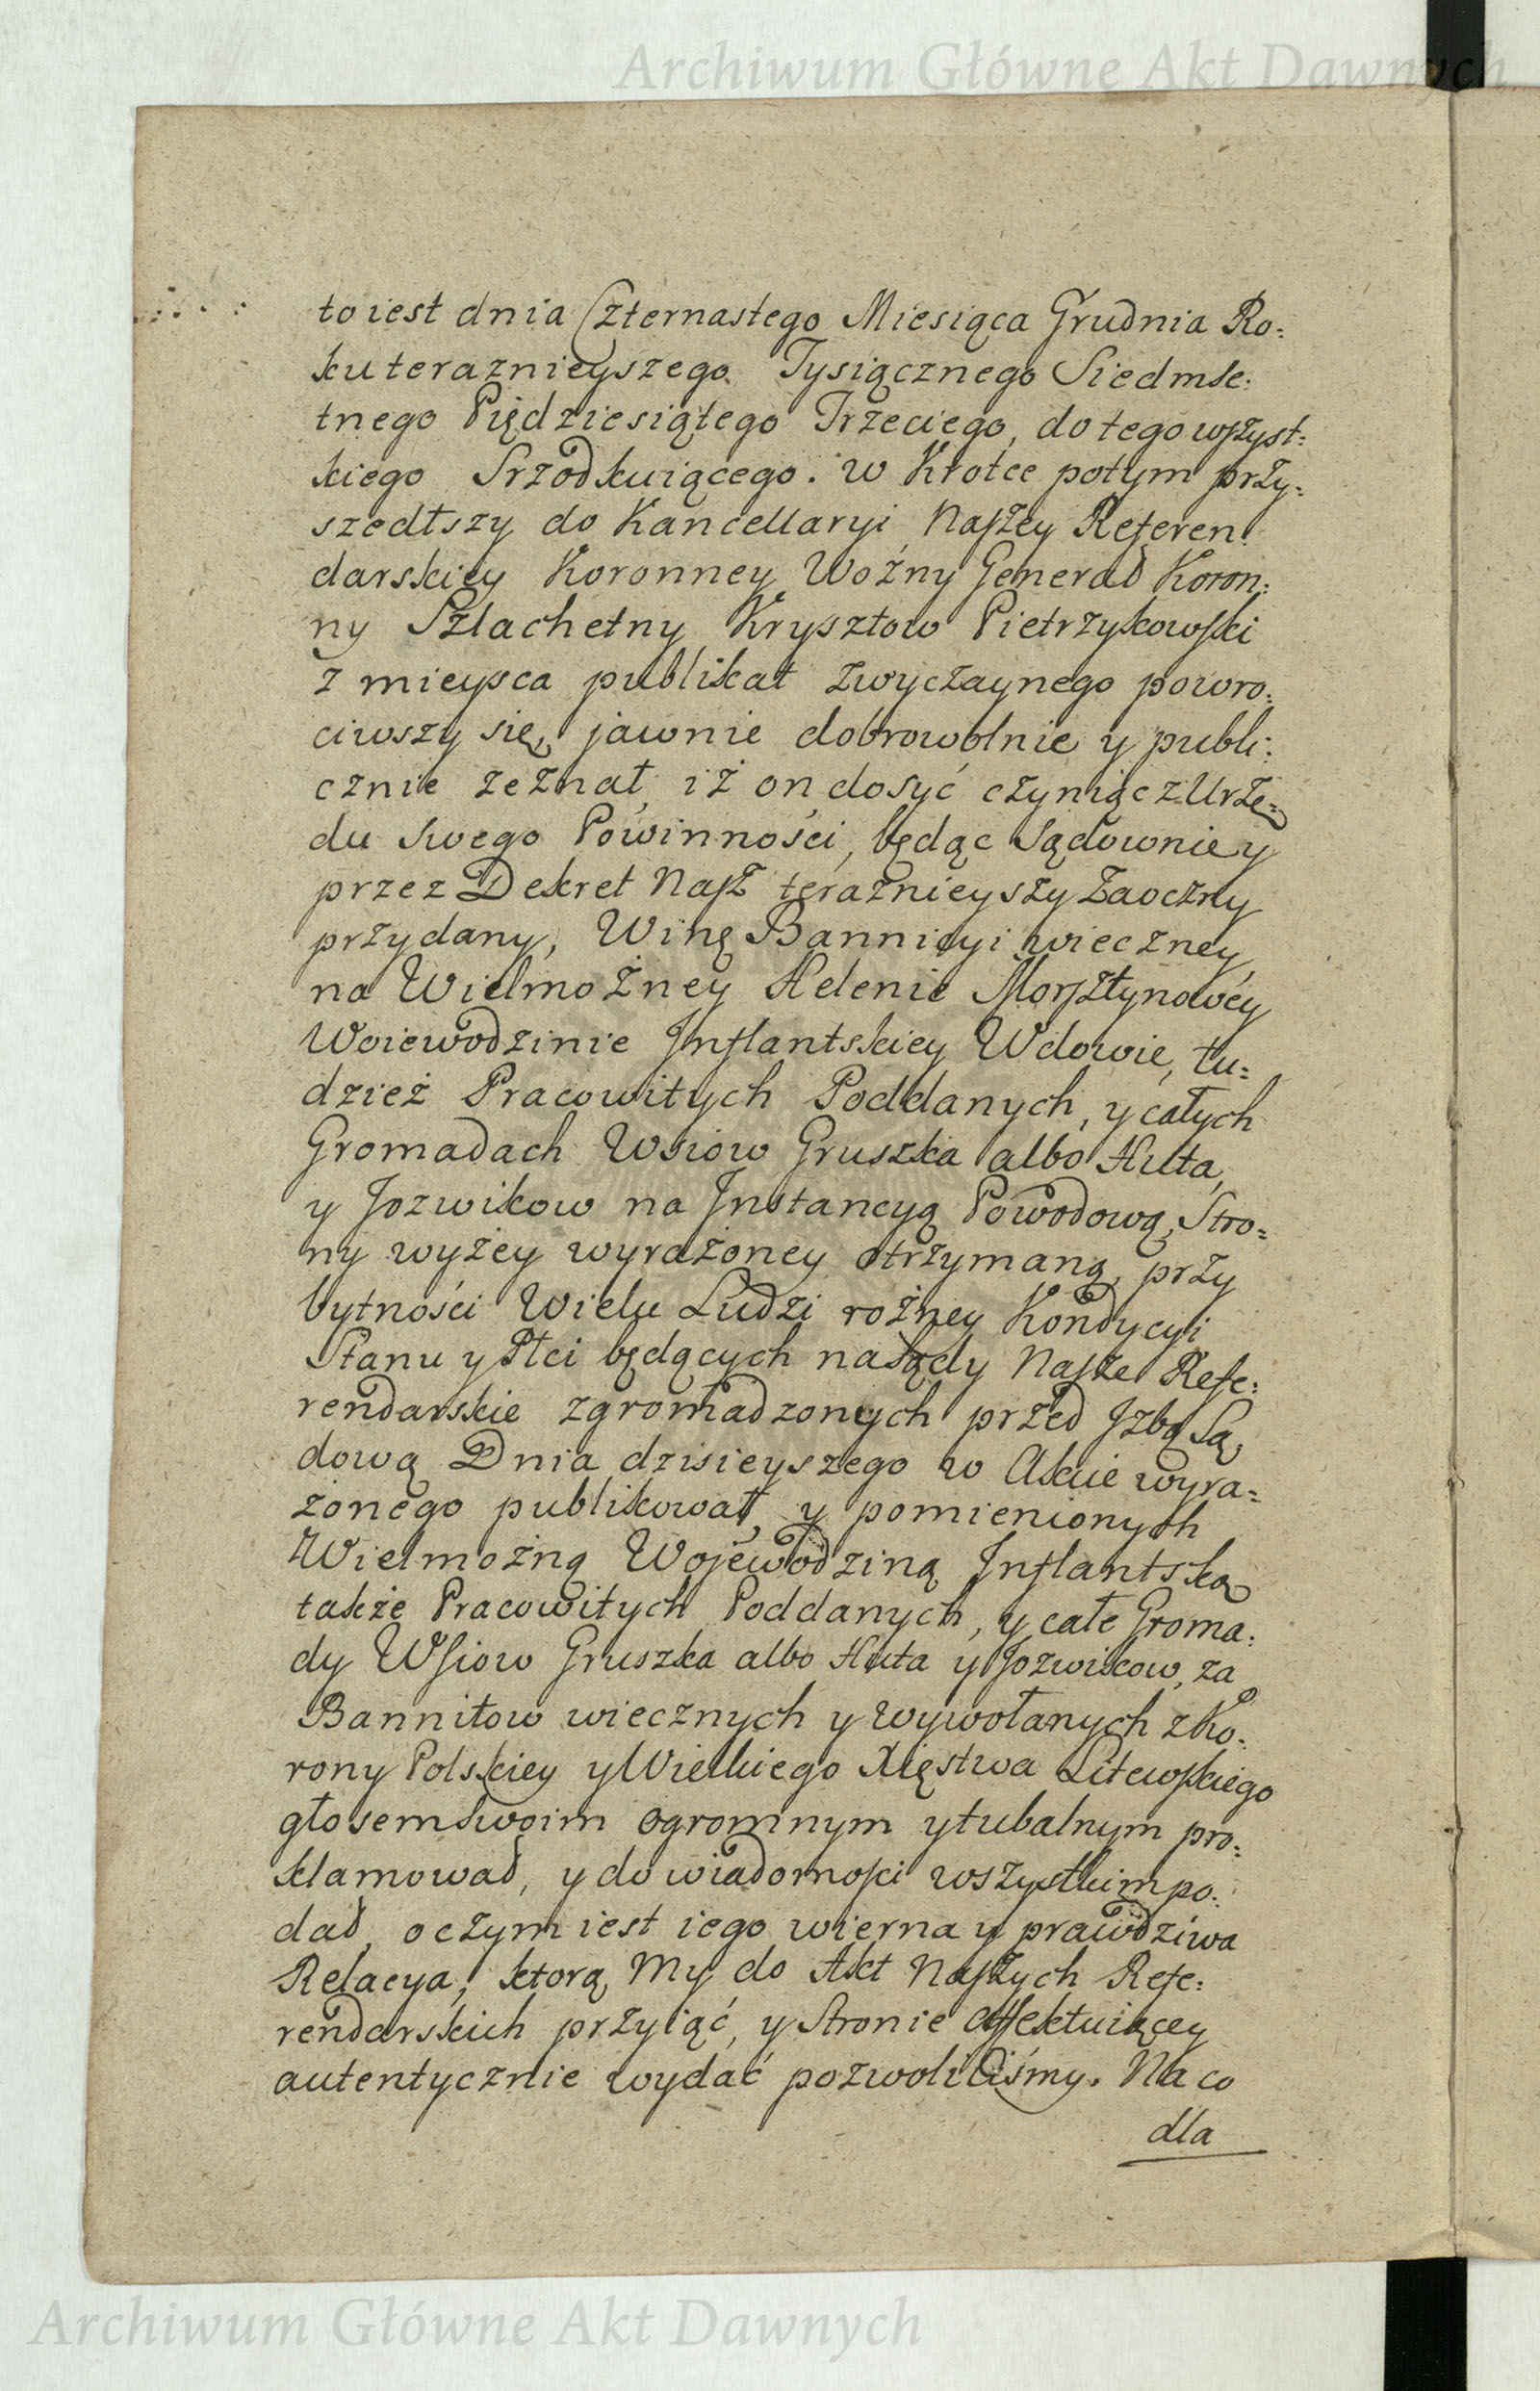 Archiwum Główne Akt Dawnych
to iest dnia Czternastego Miesiąca Grudnia Ro:
ku teraznieyszego Tysiącznego Siedmse:
tnego Piędziesiątego Trzeciego, do tego wszyst:
kiego Srzodkuiącego. w Krotce potym przy:
szedłszy do Kancellaryi Naszey Referen:
darskiey Koronney Woźny Generał Koron:
ny Szlachetny Krysztow Pietrzykowski
z mieysca publikat zwyczaynego powro:
ciwszy się, jawnie dobrowolnie y publi:
cznie zeznał, iż on dosyć czyniąc z Urzę=
du swego Powinności, będąc Sądownie y
przez Dekret Nasz teraznieyszy Zaoczny
przydany, Winę Bannicyi wieczney,
na Wielmożney Helenie Morsztynowey
Woiewodzinie Inflantskiey Wdowie, tu=
dzież Pracowitych Poddanych, y całych
Gromadach Wsiow Gruszka albo Huta,
y Jozwikow na Instancyą Powodową, Stro=
ny wyżey wyrażoney otrzymaną, przy
bytności Wielu Ludzi rożney Kondycyi
Stanu y Płci będących na Sądy Nasze Refe:
rendarskie zgromadzonych przed Jzbą Są,
dową Dnia dzisieyszego w Akcie wyra=
żonego publikował, y pomienionych
Wielmożną Wojewodziną Inflantską
także Pracowitych Poddanych, y całe Groma:
dy Wsiow Gruszka albo Huta y Jozwikow, za
Bannitow wiecznych y wywołanych z Ko:
rony Polskiey y Wielkiego Xięstwa Litewskiego
głosem swoim ogromnym y tubalnym pro:
klamował, y do wiadomości wszystkim po:
dał, o czym iest iego wierna y prawdziwa
Relacya, ktorą My do Akt Naszych Refe:
rendarskich przyiąć, y Stronie affektuiącey
autentycznie wydać pozwoliliśmy. Na co
dla
Archiwum Główne Akt Dawnych